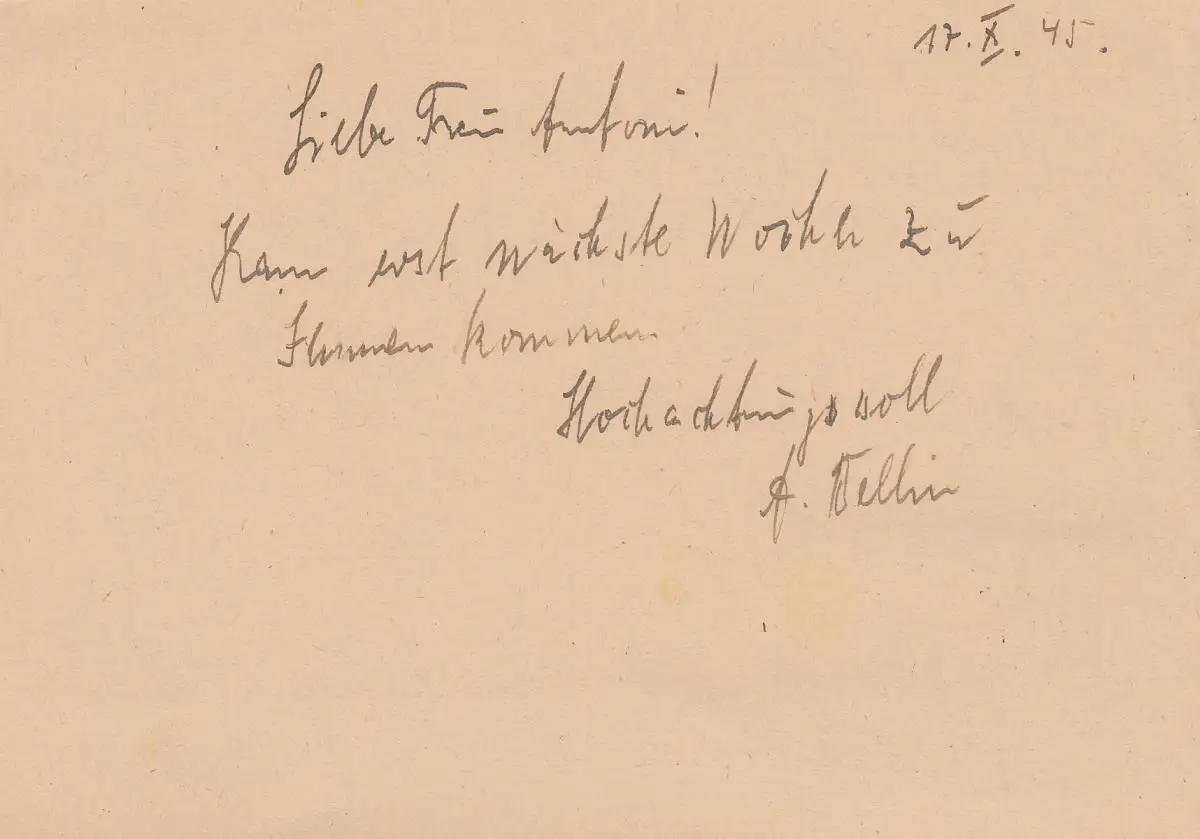 17. X. 45.
Liebe Frau Antoni!
Kann erst nächste Woche zu
Ihnen kommen.
Hochachtungsvoll
A.